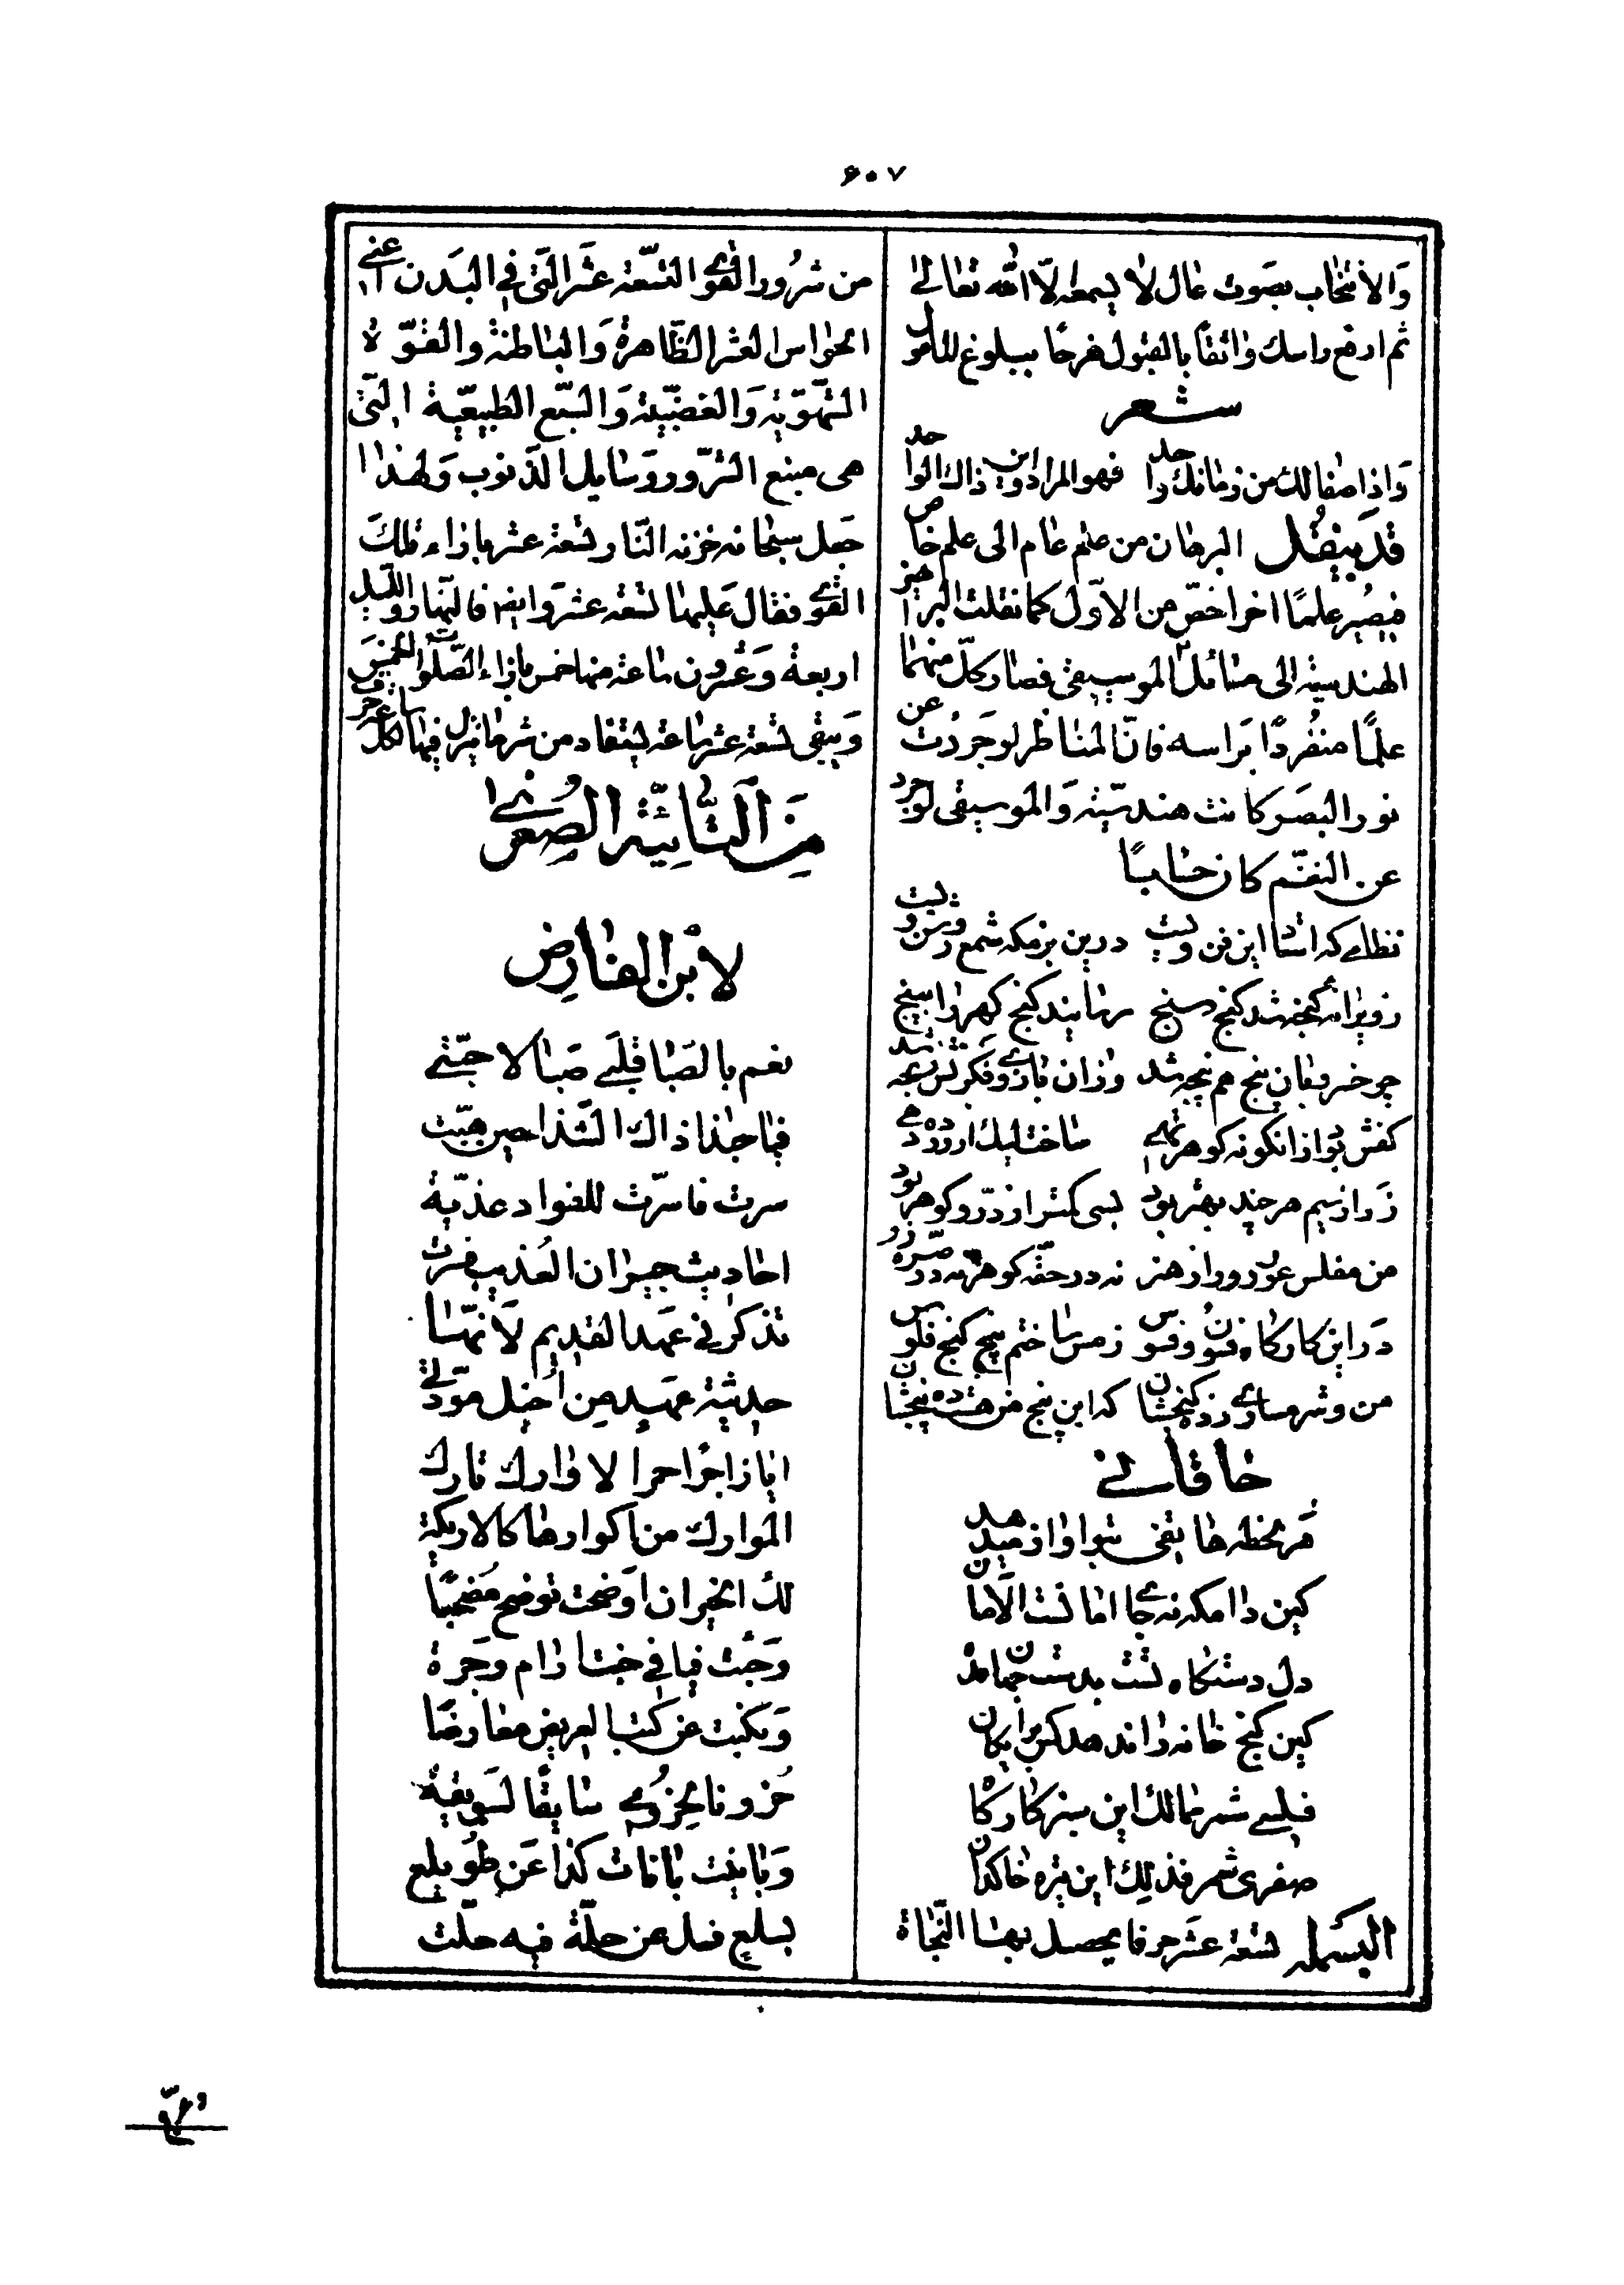 ۶۰۷
وَالانتخاب بصَوت عال لا يسمعه الّا الله تعالى
ثم ارفع راسك واثقًا بالقبول فرحًا ببلوغ المامول
شعر
وَاذا صفا لك من زمانك واحد فهو المراد واين ذاك الواحد
قد ينقل البرهان من علم عام الى علم خاص
فيصير علمًا اخر اخصّ من الاوّل كما نقلت البراهين
الهندسيّة الى مسائل الموسيقى فصار كلّ منهما
علمًا منفردًا براسه فانّ المناظر لو جرّدت عن
نور البصَر كانت هندسيّة وَالموسيقى لو جرد
عن النغم كان حسابًا
نظامى كه استاد اين فن ويست درين بزمكه شمع روشن ويست
ز ويرانه كنجه شد كنج سنج رسانيد كنج كهر را به پنج
چو خسرو بان پنج هم پنجه شد وزان بازوى فكرتش رنجه شد
كفش بود ازانكونه كوهر تهى ساخت ليك از ده دهى
زر از سيم هر چند بهتر بود بسى كمتر از درّ و كوهر بود
من مفلس عور دور از هنر نه در حقّه كوهر نه در صرّه زر
در اين كاركاه فسون و فسوس ز مس ساختم پنج كنج فلوس
من و شرمسارى ز ده كنجشان كه اين پنج من هست ده پنجشان
خاقانى
هر لحظه هاتفى بتو اواز ميدهد
كين دامكه نه جاى امانست الامان
دل دستكاه تست بدست جهان مده
كين كنج خانه را ندهد كس برايكان
فلسى شمر ممالك اين سبز كاركاه
صفرى شمر فذلك اين تيره خاكدان
البسمله تسعة عشر حرفا يحصل بها النّجاة
من شرُور القوى التسعة عشَر الّتى فى البَدن اعنى
الحواس العشر الظّاهرة وَالباطنة والقوّة
الشهويّة وَالغضبيّة وَالسّبع الطبيعيّة الّتى
هى منبع الشّرور ووسايل الذنوب وَلهذا
جعل سبحانه خزنة النّار تسعة عشر بازاء تلك
القوى فقال عَليها تسعة عشر وَايضا فالنّهار والليل
اربعة وَعشرون ساعة منها خمس بازاء الصّلوات الخمس
وَيبقى تسعة عشر ساعة يستعاذ من شر ما ينزل فيها لكل ساعة حرف
مِنَ التّائيّة الصُغرى
لابن الفارض
نعم بالصَبا قلبى صَبا لاحبّتى
فيا حبذا ذاك الشّذا حين هبّت
سرت فاسرّت للفواد غذيّة
احاديث جيران العُذيب فسرت
تذكرنى عهد القديم لانّها
حديثة عهد من اُهيل مودّتى
ايا زاجرًا حمر الاوارك تارك
الموارك من اكوارها كالاريكة
لك الخير ان اوضحت توضح مُضحيًا
وَجُبت فيافى خبت ارام وجرة
وَنكّبت عن كثب العريض معارضًا
حُزونا لحزوى سايقًا لسويقة
وَباينت بانات كذا عَن طُويلع
بسلع فسل عن حلّة فيه حلّت